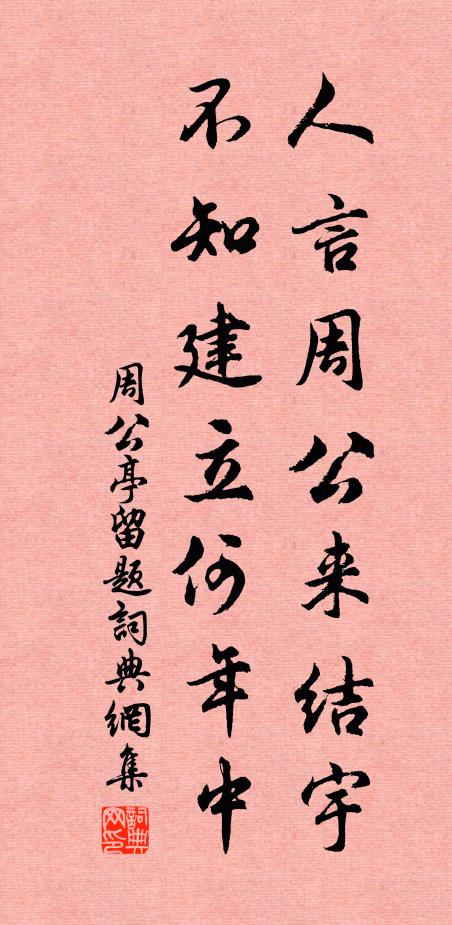 人言周公来结宇
不知建立何年中
周公亭留题詞典網集
詞典网印